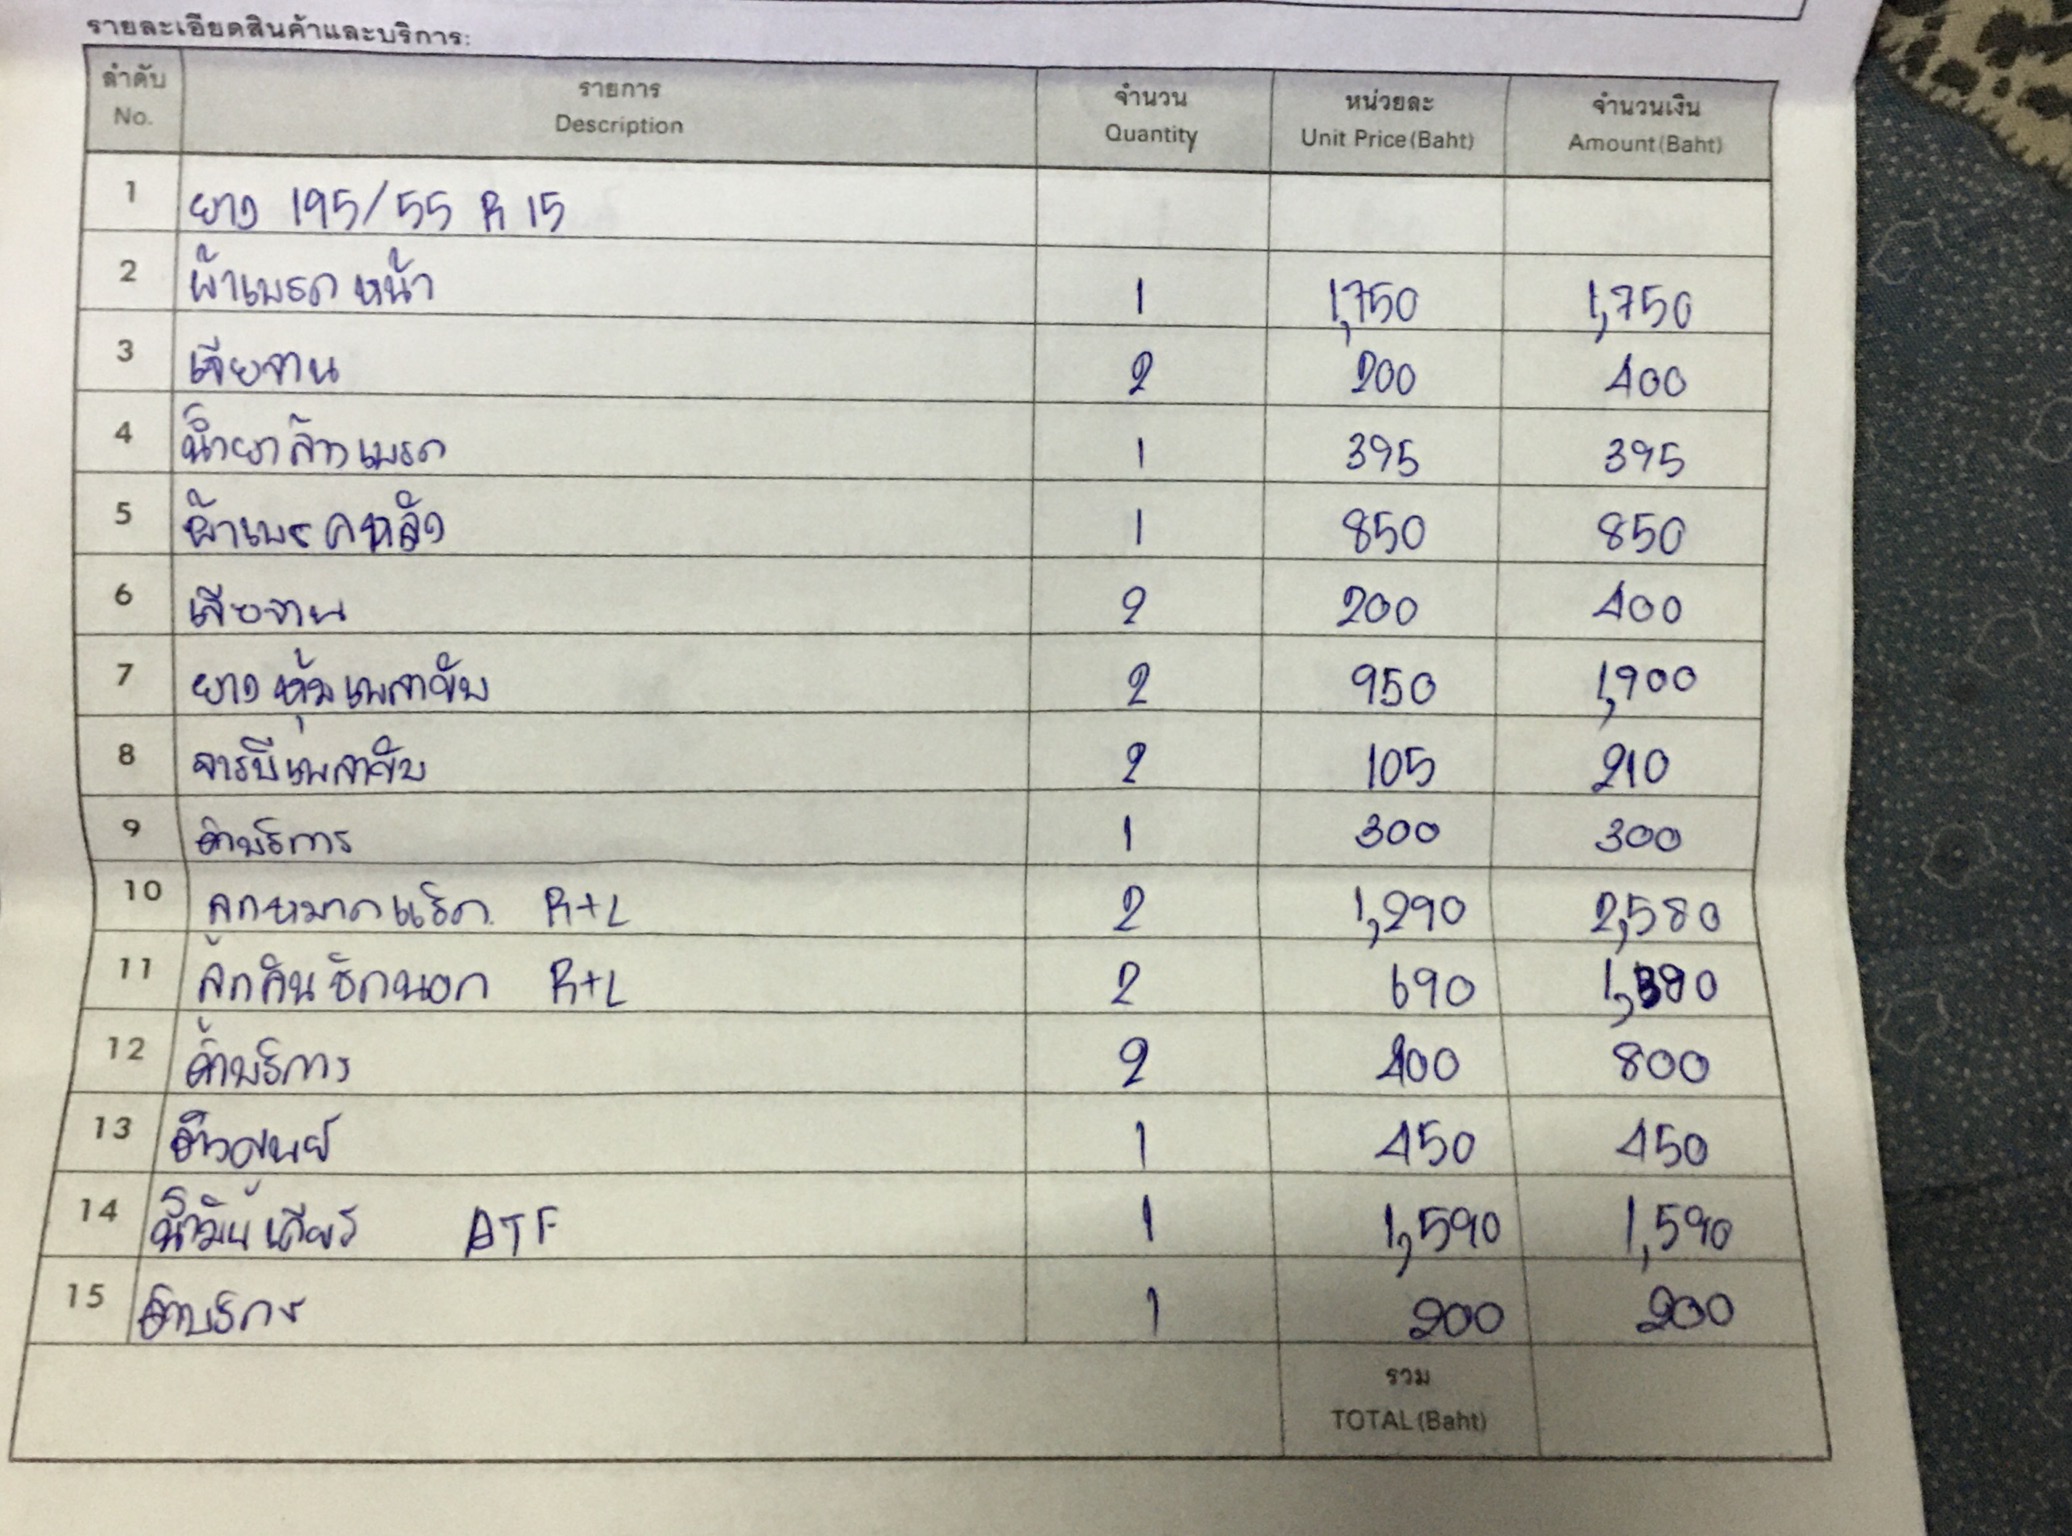 รายละเอียดสินค้าและบริการ:
ลำดับ รายการ จำนวน หน่วยละ จำนวนเงิน
No. Description Quantity Unit Price(Baht) Amount(Baht)
1 ยาง 195/55 R 15
2 ผ้าเบรก หน้า 1 1,750 1,750
3 เจียจาน 2 200 400
4 น้ำยาล้างเบรก 1 395 395
5 ผ้าเบรคหลัง 1 850 850
6 เจียจาน 2 200 400
7 ยางหุ้มเพลาขับ 2 950 1,900
8 จารบีเพลาขับ 2 105 210
9 ค่าบริการ 1 300 300
10 ลูกหมากแร็ค R+L 2 1,290 2,580
11 ลูกคันชักนอก R+L 2 690 1,380
12 ค่าบริการ 2 400 800
13 ตั้งศูนย์ 1 450 450
14 น้ำมันเกียร์ ATF 1 1,590 1,590
15 ค่าบริการ 1 200 200
รวม
TOTAL(Baht)